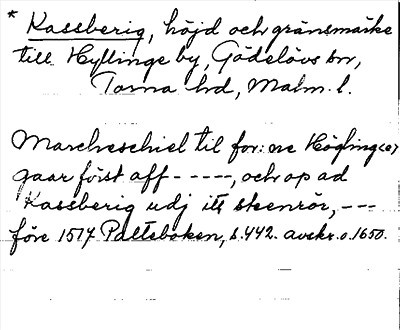 * Kassberig, höjd och gränsmärke
till Hyllinge by, Gödelövs sn,
Torna hd, Malm. l.
Marcheschiel til for: ne Högling(e)
gaar först aff - - - - -, och op ad
Kassberig udj itt steenrör, - - -
före 1517 Palteboken, s. 442. avskr. o. 1650.